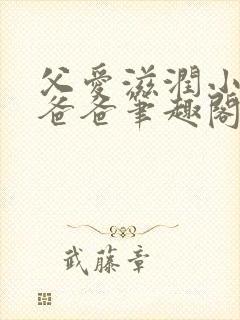 父愛滋潤小
爸爸筆趣閣
武藤章